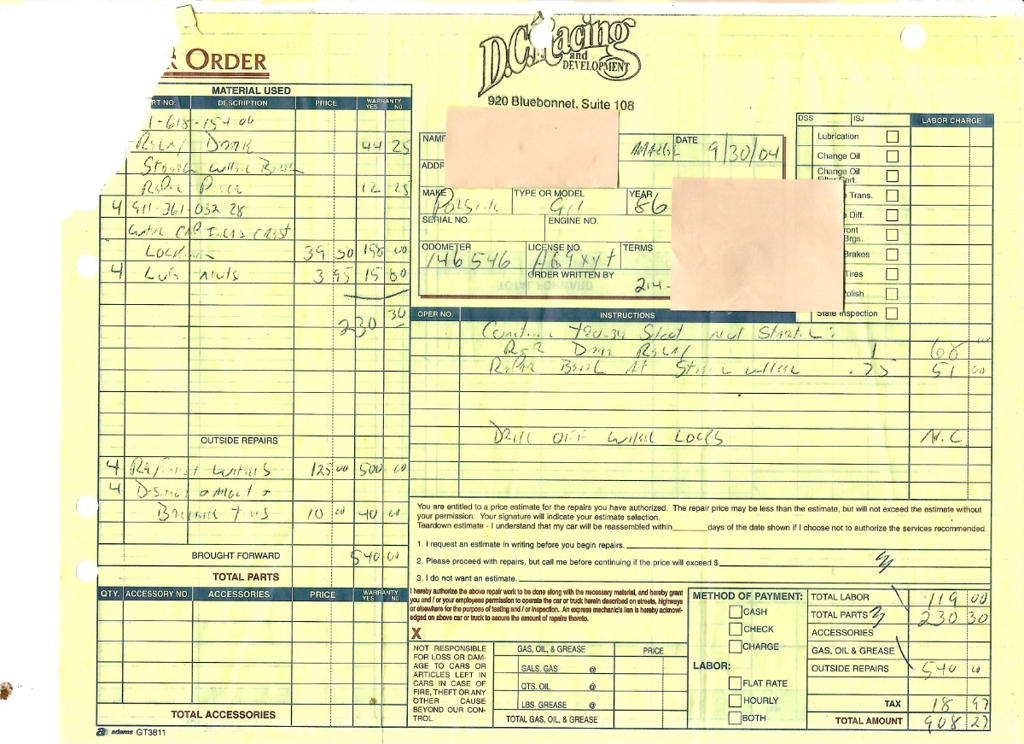 ORDER
D.C. Racing
and
DEVELOPMENT
920 Bluebonnet, Suite 108
MATERIAL USED
RT NO. DESCRIPTION PRICE WARRANTY YES NO
1-618-154-00
Relay DME 44 25
12 25
4 911-361-032 28
Lock 39 50 198 00
4 Lug nuts 3 95 15 80
230 30
OUTSIDE REPAIRS
4 Refinish wheels 125 00 500 00
4 Dismount +
Balance tires 10 00 40 00
BROUGHT FORWARD 540 00
TOTAL PARTS
QTY. ACCESSORY NO. ACCESSORIES PRICE WARRANTY YES NO
TOTAL ACCESSORIES
adams GT3811
NAME DATE 9/30/04
ADDR
MAKE Porsche TYPE OR MODEL 911 YEAR 86
SERIAL NO. ENGINE NO.
ODOMETER 146546 LICENSE NO. TERMS
ORDER WRITTEN BY
214-
DSS ISJ LABOR CHARGE
Lubrication
Change Oil
Change Oil
Filter Cart.
Trans.
Diff.
ront
Brgs.
Brakes
Tires
olish
State Inspection
OPER NO. INSTRUCTIONS
R&R DME Relay 1 68 00
Repair Break At Steering wheel .75 51 00
Drill off wheel Locks N.C.
You are entitled to a price estimate for the repairs you have authorized. The repair price may be less than the estimate, but will not exceed the estimate without
your permission. Your signature will indicate your estimate selection.
Teardown estimate - I understand that my car will be reassembled within days of the date shown if I choose not to authorize the services recommended.
1. I request an estimate in writing before you begin repairs.
2. Please proceed with repairs, but call me before continuing if the price will exceed $
3. I do not want an estimate.
I hereby authorize the above repair work to be done along with the necessary material, and hereby grant
you and / or your employees permission to operate the car or truck herein described on streets, highways
or elsewhere for the purpose of testing and / or inspection. An express mechanic's lien is hereby acknowl-
edged on above car or truck to secure the amount of repairs thereto.
X
NOT RESPONSIBLE
FOR LOSS OR DAM-
AGE TO CARS OR
ARTICLES LEFT IN
CARS IN CASE OF
FIRE, THEFT OR ANY
OTHER CAUSE
BEYOND OUR CON-
TROL.
GAS, OIL, & GREASE PRICE
GALS. GAS @
QTS. OIL @
LBS. GREASE @
TOTAL GAS, OIL, & GREASE
METHOD OF PAYMENT:
CASH
CHECK
CHARGE
LABOR:
FLAT RATE
HOURLY
BOTH
TOTAL LABOR 119 00
TOTAL PARTS 230 30
ACCESSORIES
GAS, OIL & GREASE
OUTSIDE REPAIRS 540 00
TAX 18 97
TOTAL AMOUNT 908 27